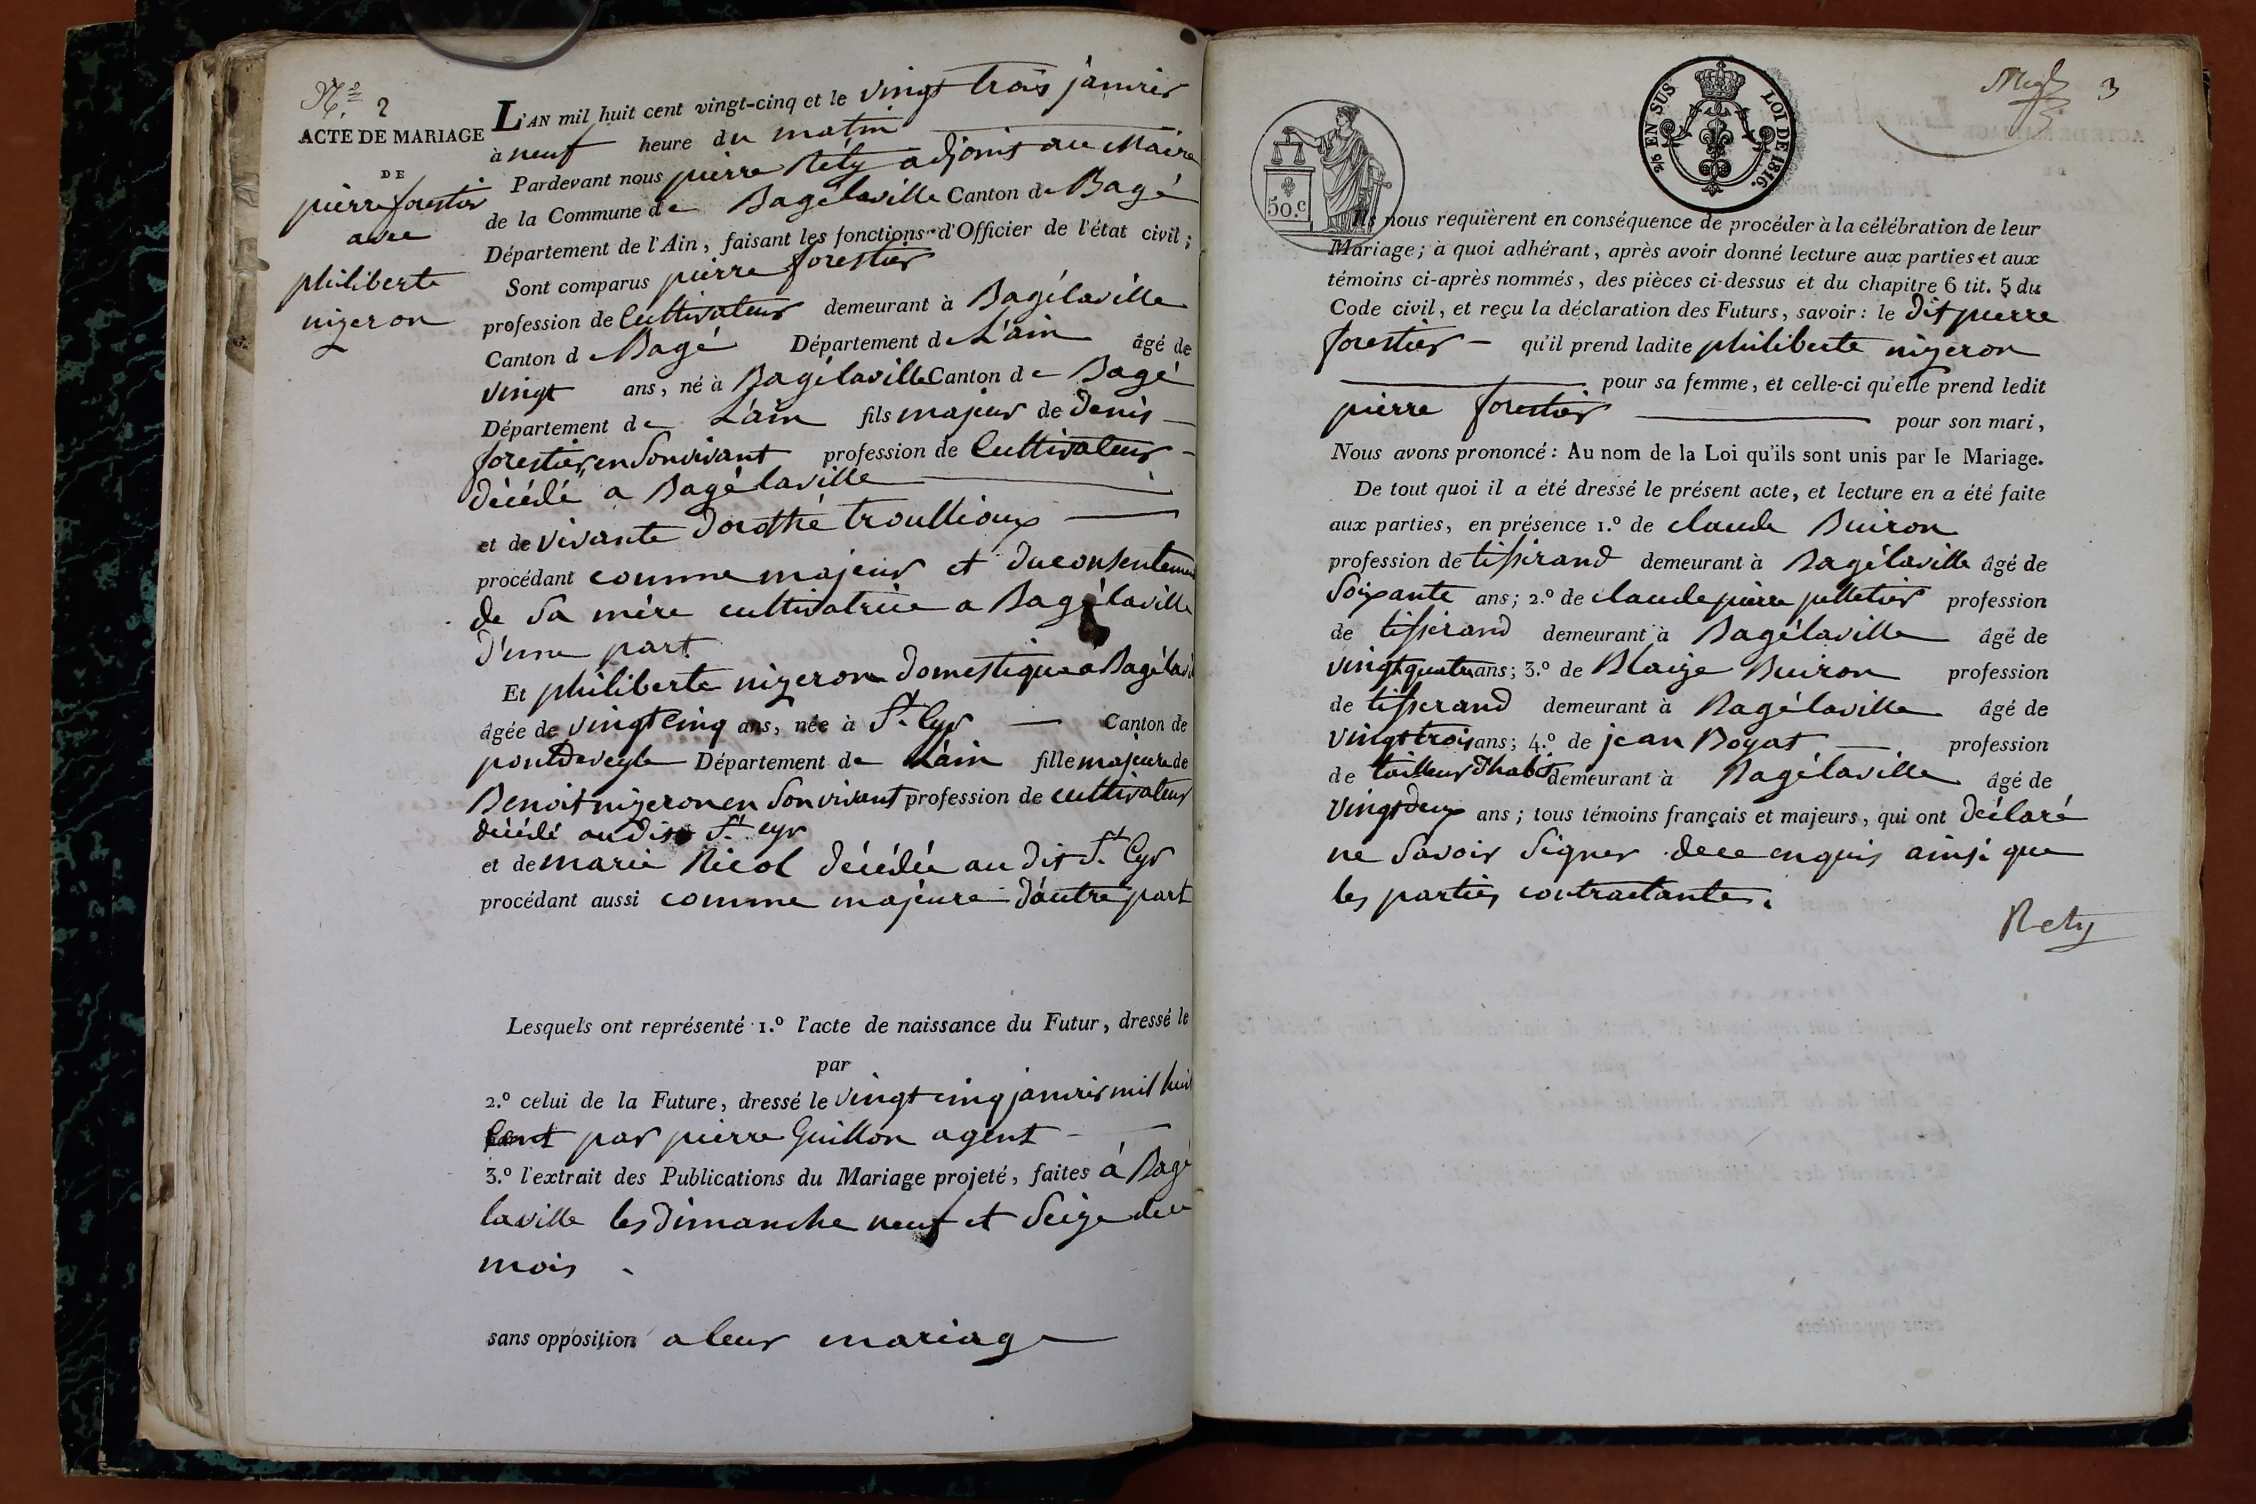 N.º 2
ACTE DE MARIAGE
DE
pierre forestier
avec
philiberte
nizeron
L'AN mil huit cent vingt-cinq et le vingt trois janvier
à neuf heure du matin
Pardevant nous pierre Réty adjoint au Maire
de la Commune de Bagélaville Canton de Bagé
Département de l'Ain, faisant les fonctions d'Officier de l'état civil;
Sont comparus pierre forestier
profession de Cultivateur demeurant à Bagélaville
Canton d e Bagé Département de L'ain âgé de
vingt ans, né à Bagélaville Canton de Bagé
Département de L'ain fils majeur de Denis
forestier, en Son vivant profession de Cultivateur
décédé a Bagélaville
et de vivante Dorothé troullioux
procédant comme majeur et du consentement
de Sa mère cultivatrice a Bagélaville
d'une part
Et philiberte nizeron domestique a Bagélavi
âgée de vingt Cinq ans, née à St. Cyr Canton de
pontdeveyle Département de L'ain fille majeure de
Benoit nizeron en Son vivant profession de cultivateur
décédé au dit St. cyr
et de marie Nicol décédée au dit St. Cyr
procédant aussi comme majeure d'autre part
Lesquels ont représenté 1.º l'acte de naissance du Futur, dressé le
par
2.º celui de la Future, dressé le vingt cinq janvier mil huit
Cent par pierre Guillon agent
3.º l'extrait des Publications du Mariage projeté, faites à Bagé
laville les Dimanche neuf et Seize de ce
mois
sans opposition a leur mariage
50.c
2/5 EN SUS LOI DE 1816.
3
Ils nous requièrent en conséquence de procéder à la célébration de leur
Mariage; à quoi adhérant, après avoir donné lecture aux parties et aux
témoins ci-après nommés, des pièces ci-dessus et du chapitre 6 tit. 5 du
Code civil, et reçu la déclaration des Futurs, savoir: le dit pierre
forestier qu'il prend ladite philiberte nizeron
pour sa femme, et celle-ci qu'elle prend ledit
pierre forestier pour son mari,
Nous avons prononcé: Au nom de la Loi qu'ils sont unis par le Mariage.
De tout quoi il a été dressé le présent acte, et lecture en a été faite
aux parties, en présence 1.º de claude Buiron
profession de tisserand demeurant à Bagélaville âgé de
Soixante ans; 2.º de claude pierre pelletier profession
de tisserand demeurant à Bagélaville âgé de
vingt quatre ans; 3.º de Blaize Buiron profession
de tisserand demeurant à Bagélaville âgé de
vingt trois ans; 4.º de jean Boyat profession
de tailleur d'habit demeurant à Bagélaville âgé de
vingt deux ans; tous témoins français et majeurs, qui ont déclaré
ne Savoir Signer de ce enquis ainsi que
les parties contractantes.
Réty